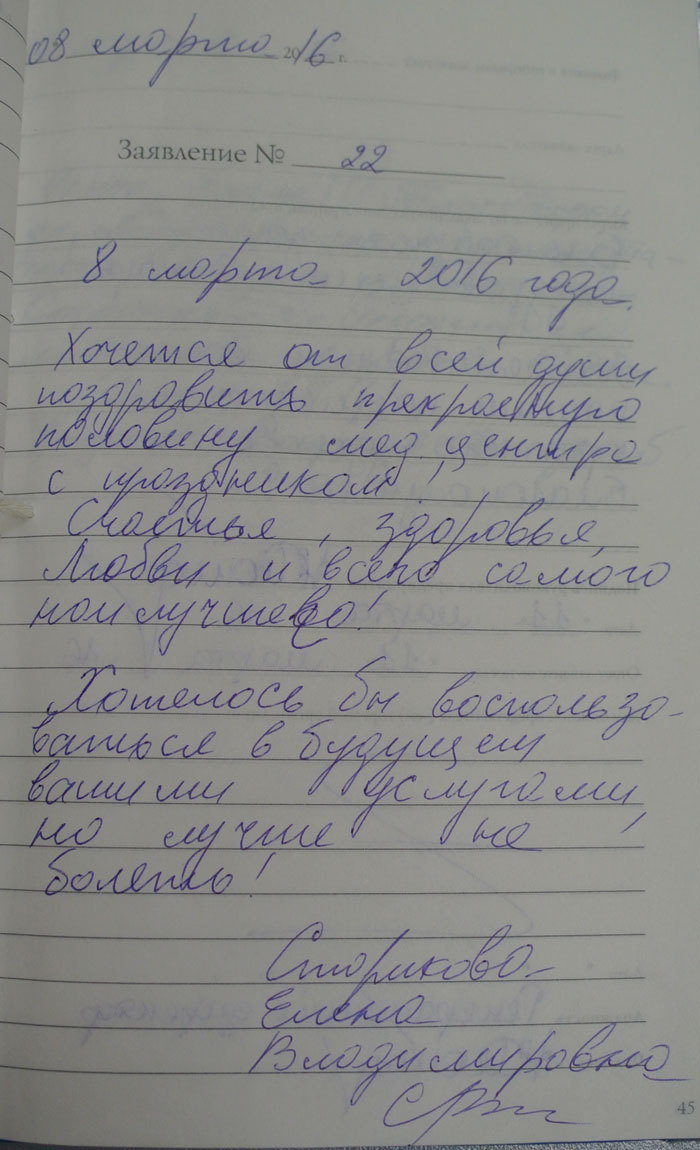 08 марта 2016 г.
Заявление № 22
8 марта 2016 года.
Хочется от всей души
поздравить прекрасную
половину мед. центра
с праздником!
Счастья, здоровья,
Любви и всего самого
наилучшего!
Хотелось бы воспользо-
ваться в будущем
вашими услугами,
но лучше не
болеть!
Старикова
Елена
Владимировна
45